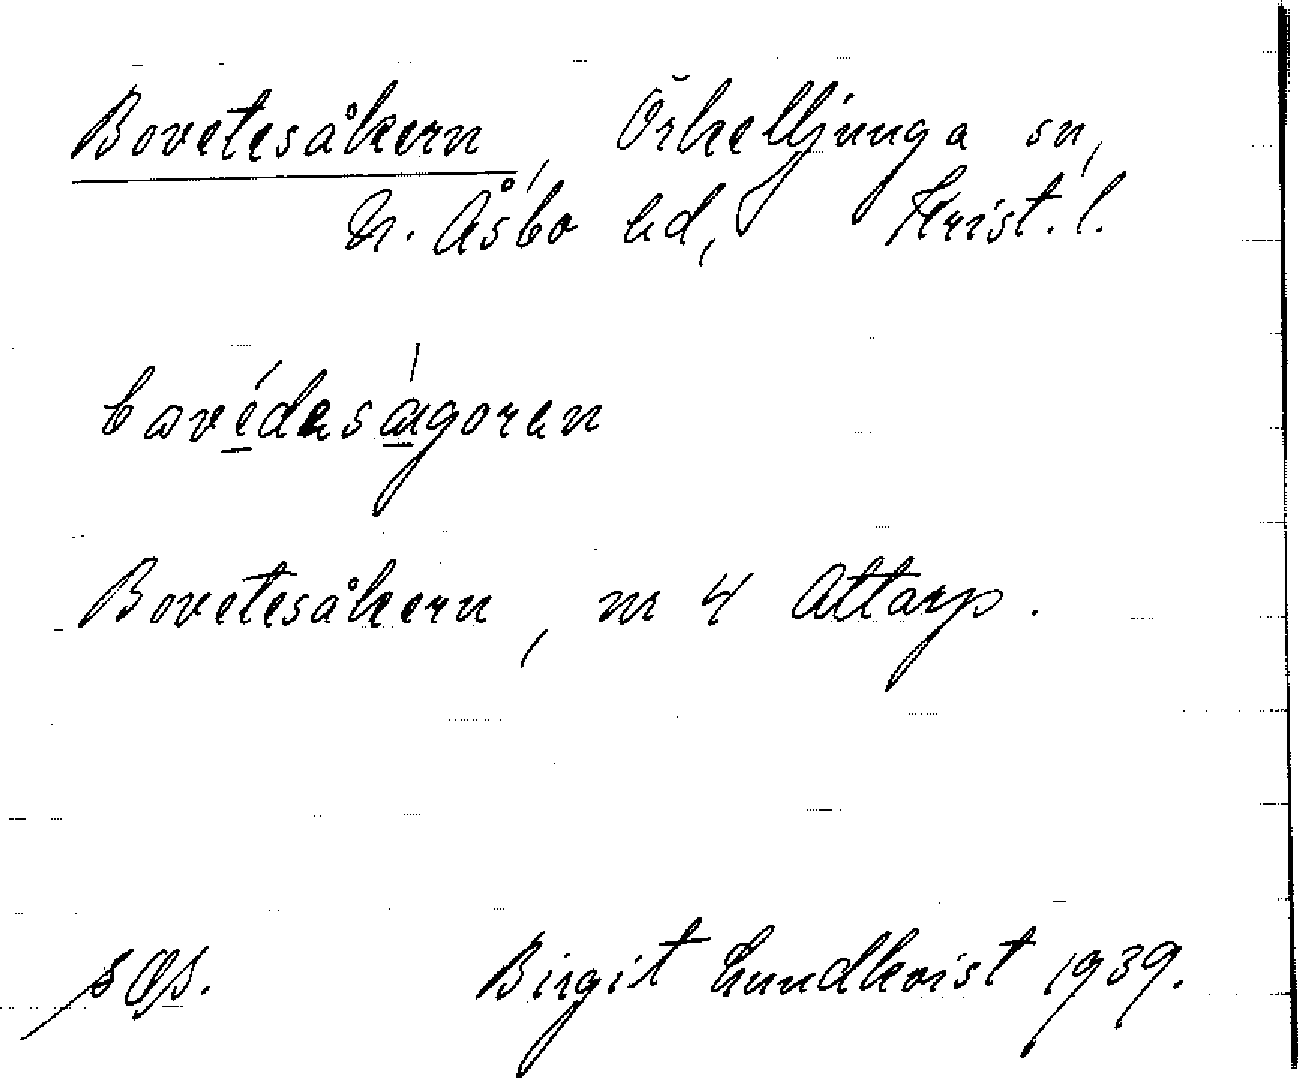 Bovetesåkern, Örkelljunga sn,
N. Åsbo hd, Krist. l.
bovédesågoren
Bovetesåkern, nr 4 Attarp.
Birgit Lundkvist 1939.